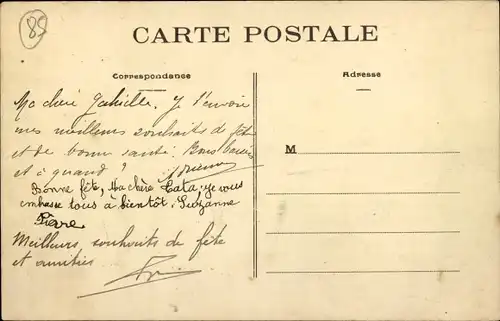 85
CARTE POSTALE
Correspondance
Adresse
Ma chère Gabrielle. Je t'envoie
mes meilleurs souhaits de fête
et de bonne santé. Bons baisers
et à quand ?
Bonne fête, Ma chère Tata, je vous
embrasse tous à bientôt. Suzanne
Pierre
Meilleurs souhaits de fête
et amitiés
M